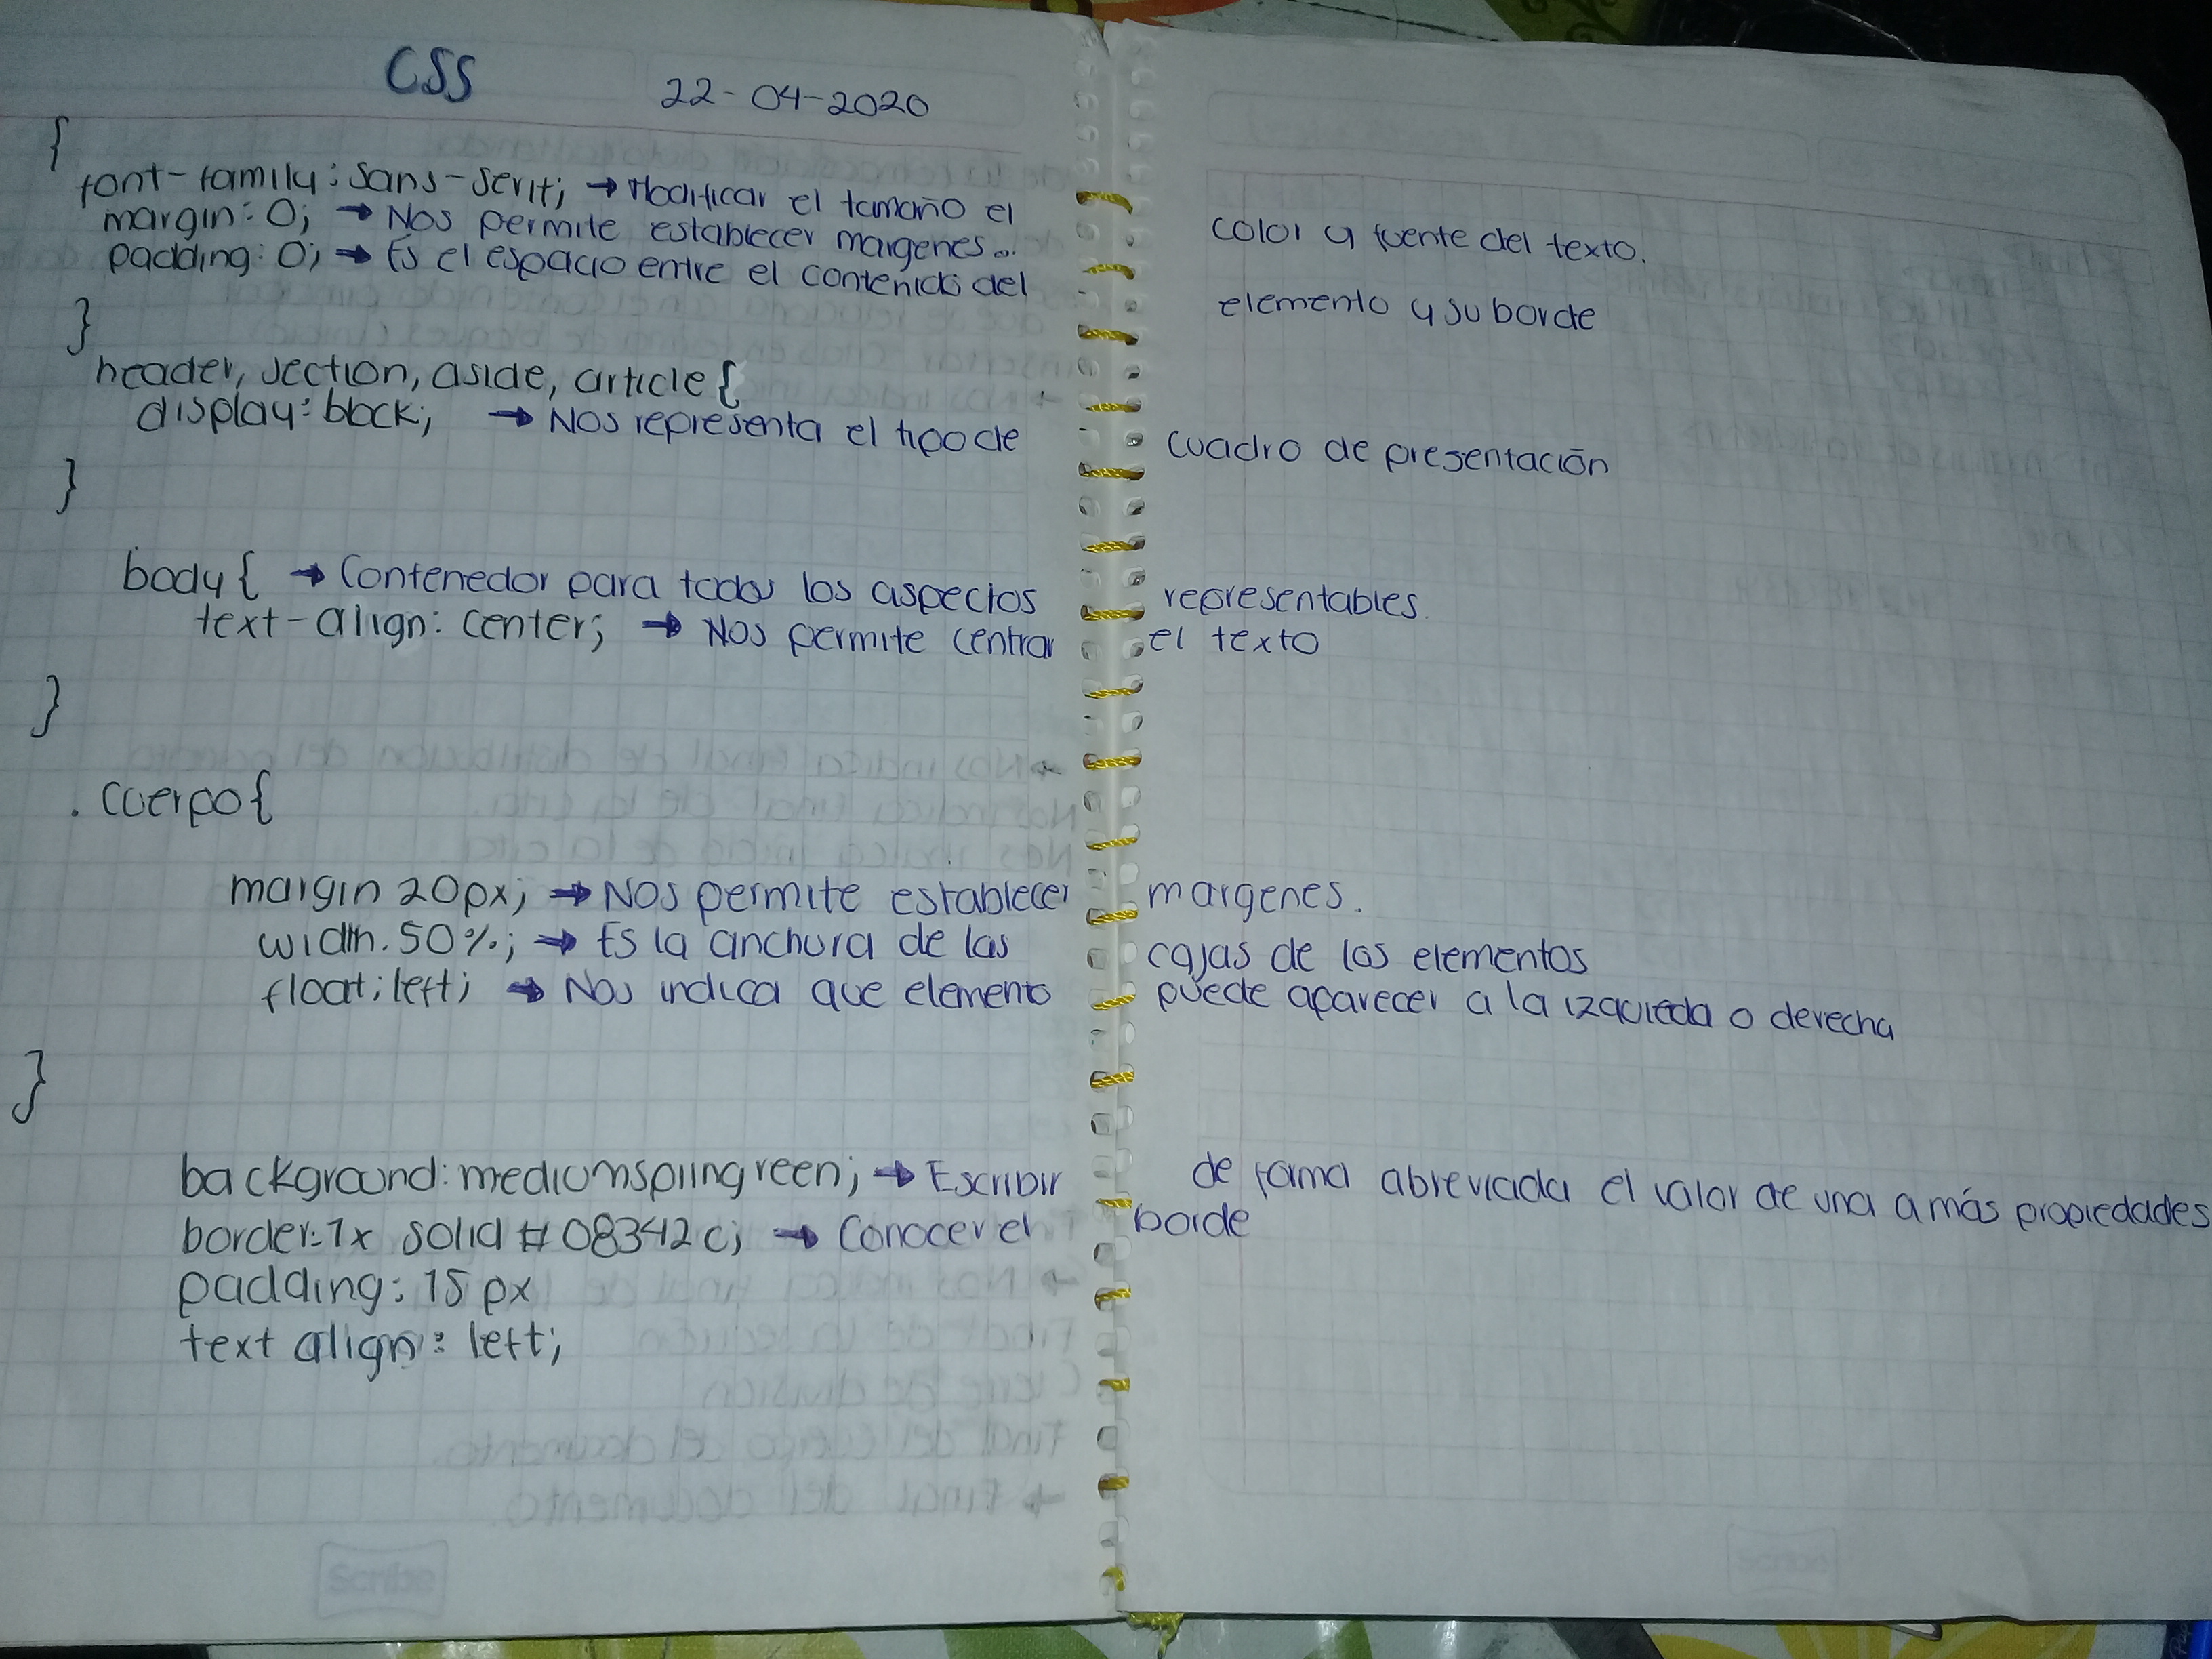 CSS
22-04-2020
{
font-family: sans-serif; → Modificar el tamaño el color y fuente del texto.
margin: 0; → Nos permite establecer margenes..
padding: 0; → Es el espacio entre el contenido del elemento y su borde
}
header, section, aside, article {
display: block; → Nos representa el tipo de cuadro de presentación
}
body { → Contenedor para todos los aspectos representables.
text-align: center; → Nos permite centrar el texto
}
. cuerpo {
margin 20px; → Nos permite establecer margenes.
width. 50%; → Es la anchura de las cajas de los elementos
float; left; → Nos indica que elemento puede aparecer a la izquieda o derecha
}
background: mediumspiingreen; → Escribir de foma abreviada el valor de una a más propiedades
border: 1x solid #08342c; → Conocer el borde
padding: 15 px
text align: left;
Scribe
Scribe